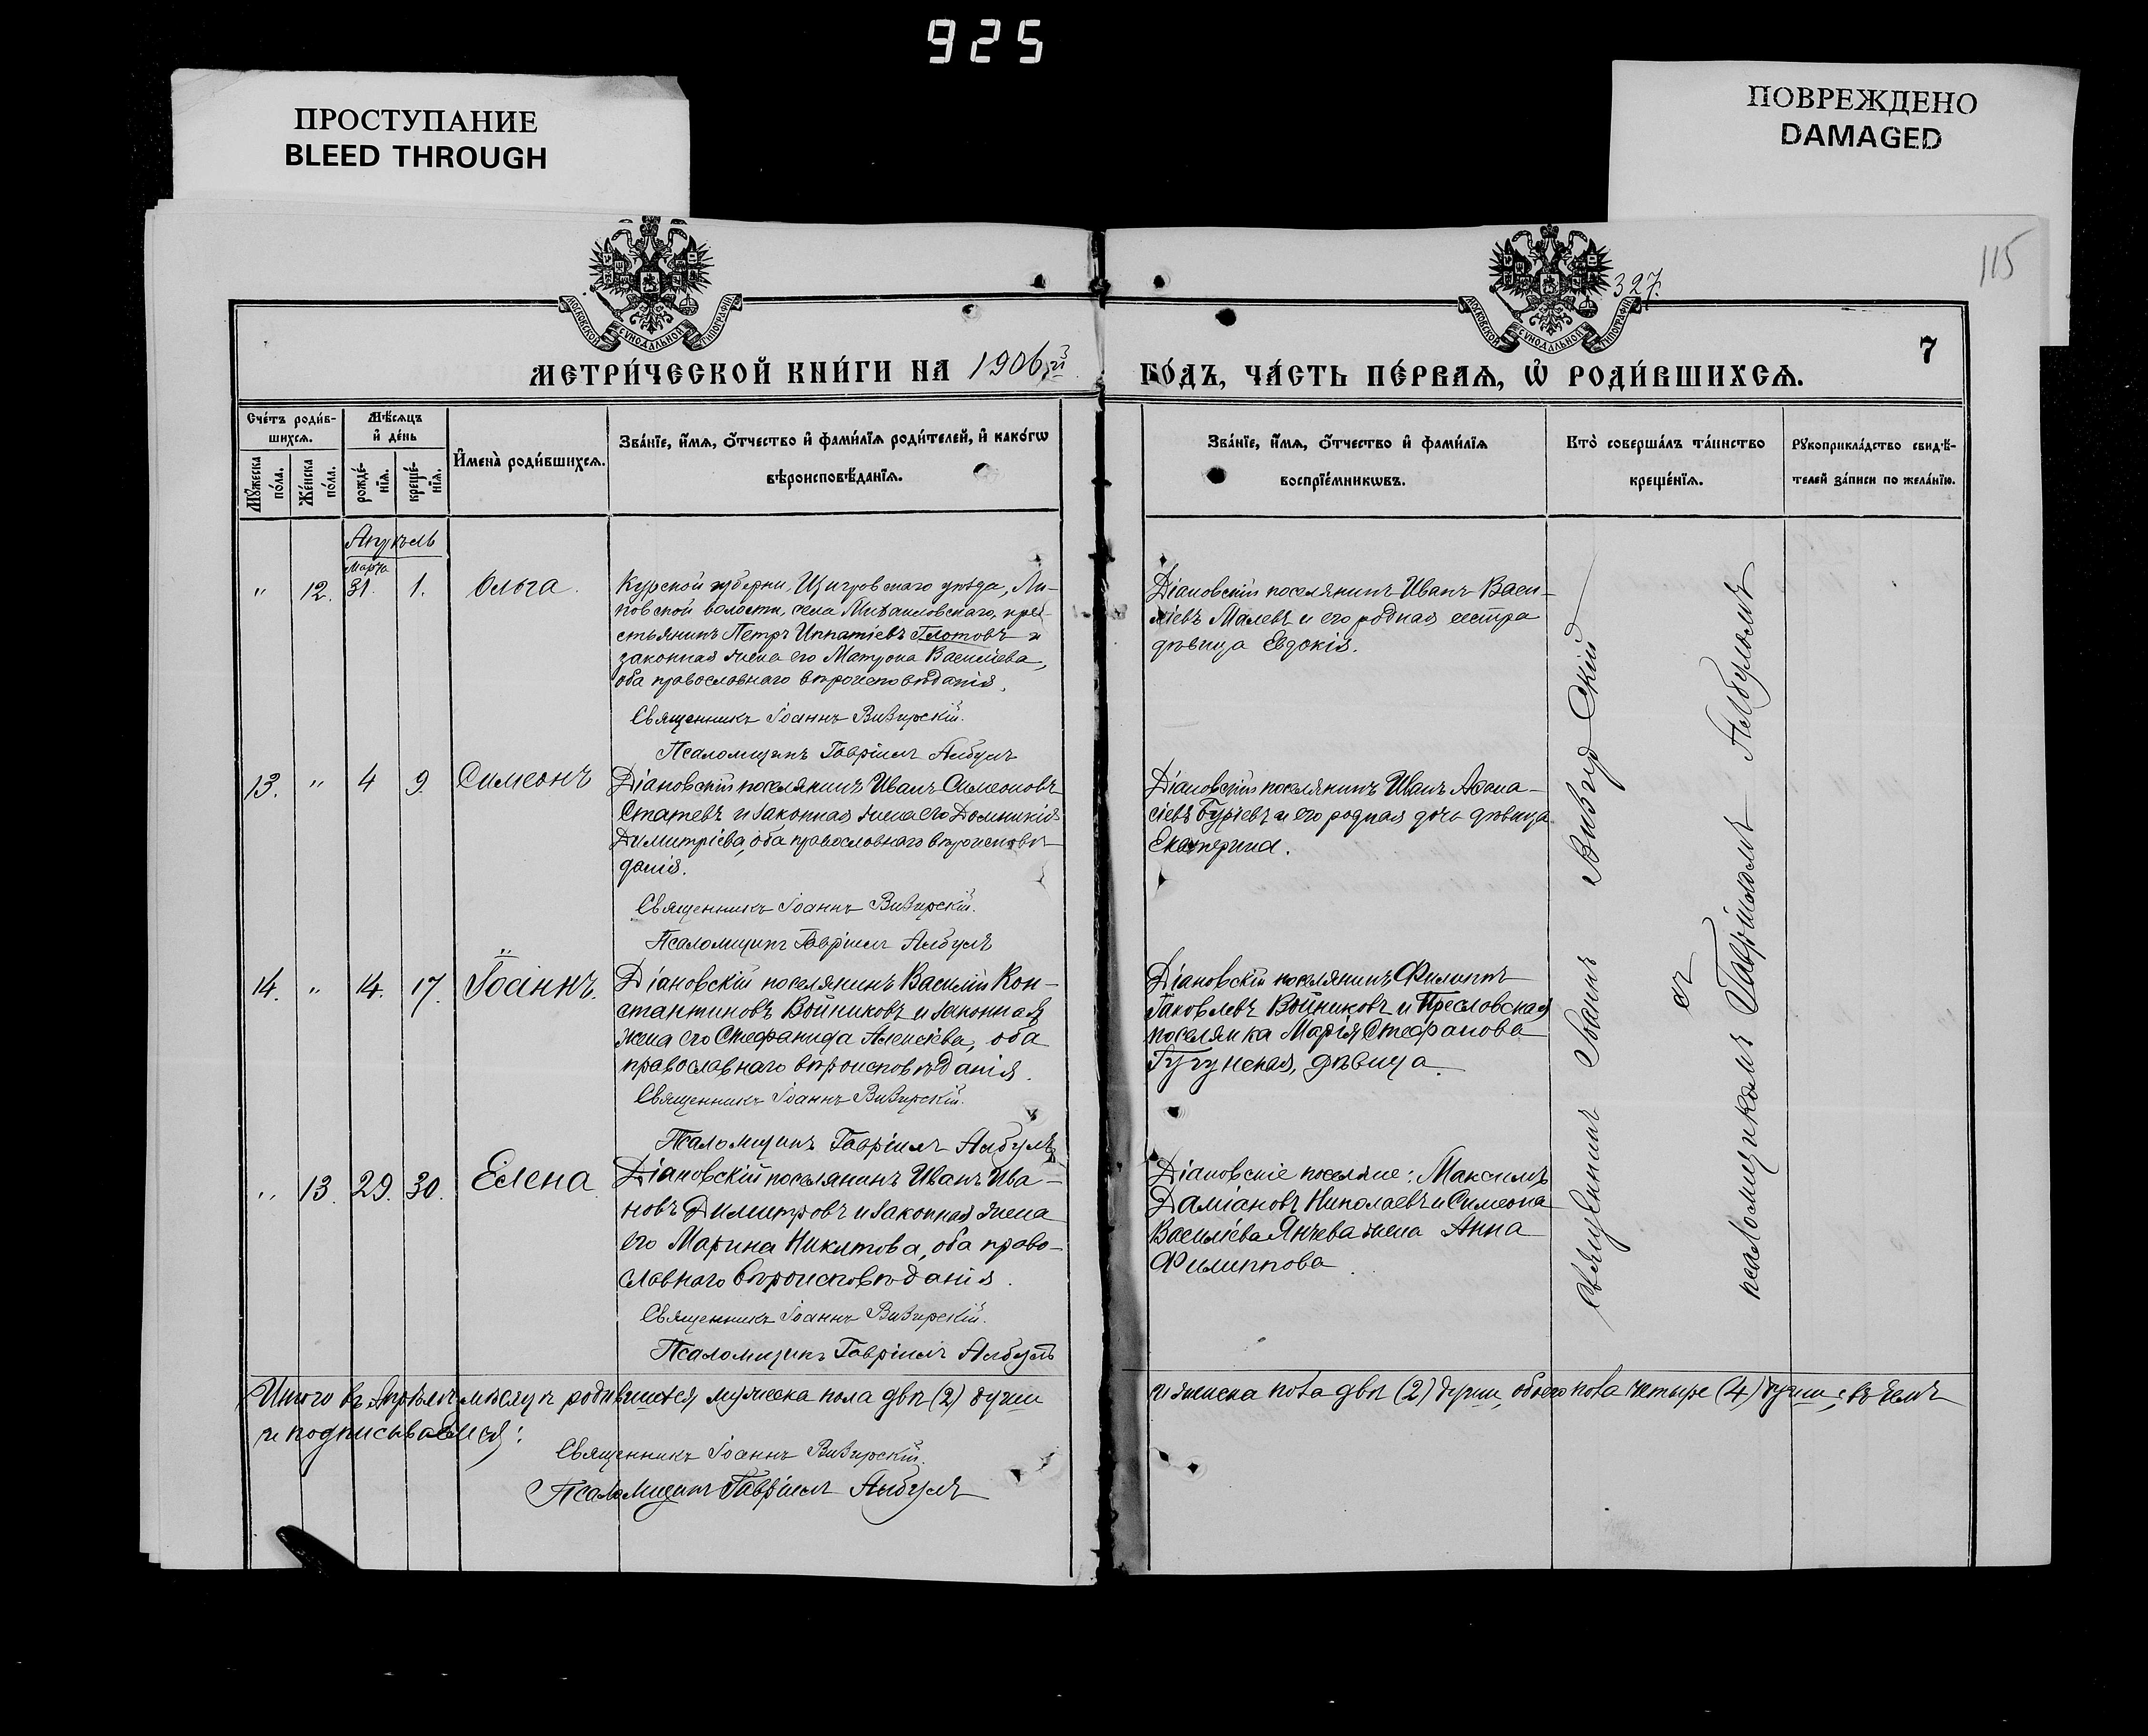 925
ПРОСТУПАНИЕ
BLEED THROUGH
ПОВРЕЖДЕНО
DAMAGED
115
327.
МОСКОВСКОЙ СѴНОДАЛЬНОЙ ТИПОГРАФІИ
МОСКОВСКОЙ СѴНОДАЛЬНОЙ ТИПОГРАФІИ
7
МЕТРИ́ЧЕСКОЙ КНИ́ГИ НА 1906й
ГО́ДЪ, ЧА́СТЬ ПЕ́РВАѦ, Ѡ҆ РОДИ́ВШИХСѦ.
Сче́тъ роди́в-
шихсѧ.
Мѣ́сѧцъ
и҆ де́нь
Мꙋ́жеска
по́ла.
Же́нска
по́ла.
рожде́-
нїѧ.
креще́-
нїѧ.
И҆мена̀ роди́вшихсѧ.
Зва́нїе, и҆́мѧ, ѻ҆́тчество и҆ фами́лїѧ роди́телей, и҆ како́гѡ
вѣроисповѣ́данїѧ.
Зва́нїе, и҆́мѧ, ѻ҆́тчество и҆ фами́лїѧ
воспрїе́мникѡвъ.
Кто̀ соверша́лъ та́инство
креще́нїѧ.
Рꙋкоприкла́дство свидѣ́-
телей за́писи по жела́нїю.
Апрѣль
Марта
" 12. 31. 1. Ольга.
Курской губерни, Щигровскаго уѣзда, Ли-
повской волости, села Михаиловскаго, кре-
стьянинъ Петръ Ипатіевъ Глотовъ и
законная жена его Матрона Василіева,
оба православнаго вѣроисповѣданія.
Священникъ Іоаннъ Визирскій.
Псаломщикъ Гавріилъ Албулъ
Діановскій поселянинъ Иванъ Васи-
ліевъ Малевъ и его родная сестра
дѣвица Евдокія.
13. " 4 9. Симеонъ
Діановскій поселянинъ Иванъ Симеоновъ
Статевъ и законная жена его Домникія
Димитріева, оба православнаго вѣроисповѣ-
данія.
Священникъ Іоаннъ Визирскій.
Псаломщикъ Гавріилъ Албулъ
Діановскій поселянинъ Иванъ Афана-
сіевъ Буріевъ и его родная дочь дѣвица
Екатерина.
14. " 14. 17. Іоаннъ.
Діановскій поселянинъ Василій Кон-
стантиновъ Войниковъ и законная
жена его Стефанида Алексіева, оба
православнаго вѣроисповѣданія.
Священникъ Іоаннъ Визирскій.
Псаломщикъ Гавріилъ Албулъ
Діановскій поселянинъ Филиппъ
Іаковлевъ Войниковъ и Пресловская
поселянка Марія Стефанова
дѣвица.
" 13. 29. 30. Елена
Діановскій поселянинъ Иванъ Ива-
новъ Димитровъ и законная жена
его Марина Никитова, оба право-
славнаго вѣроисповѣданія.
Священникъ Іоаннъ Визирскій.
Псаломщикъ Гавріилъ Албулъ
Діановскіе поселяне: Максимъ
Даміановъ Николаевъ и Симеона
Василіева Янчева жена Анна
Филиппова
Священникъ Іоаннъ Визирскій
съ
псаломщикомъ Гавріиломъ Албуломъ
Итого въ Апрѣлѣ мѣсяцѣ родившихся мужеска пола двѣ (2) души
и женска пола двѣ (2) души, обоего пола четыре (4) души; въ чемъ
и подписываемся:
Священникъ Іоаннъ Визирскій.
Псаломщикъ Гавріилъ Албулъ